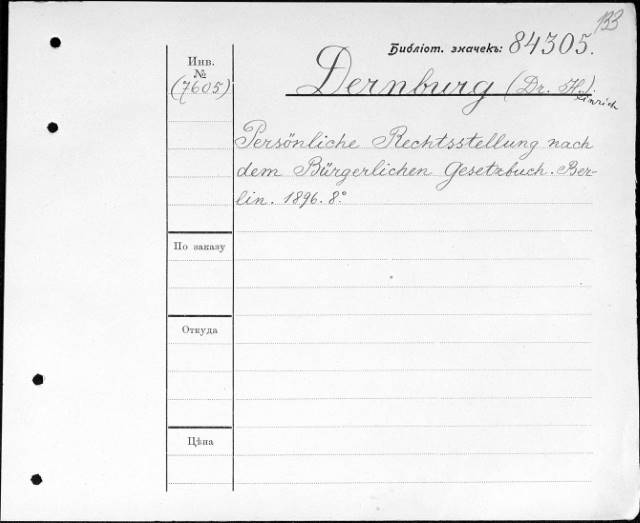 133
Библіот. значекъ: 84305.
Инв.
№
(7605)
Dernburg (Dr. Heinrich)
Persönliche Rechtsstellung nach
dem Bürgerlichen Gesetzbuch. Ber-
lin. 1896. 8°.
По заказу
Откуда
Цѣна